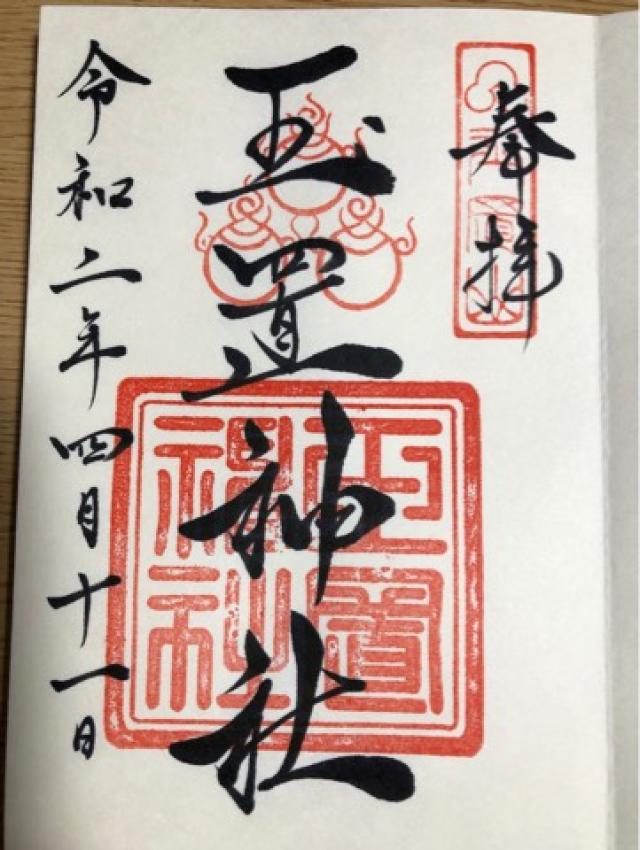 奉拝
玉置神社
令和二年四月十一日
玉置
神社